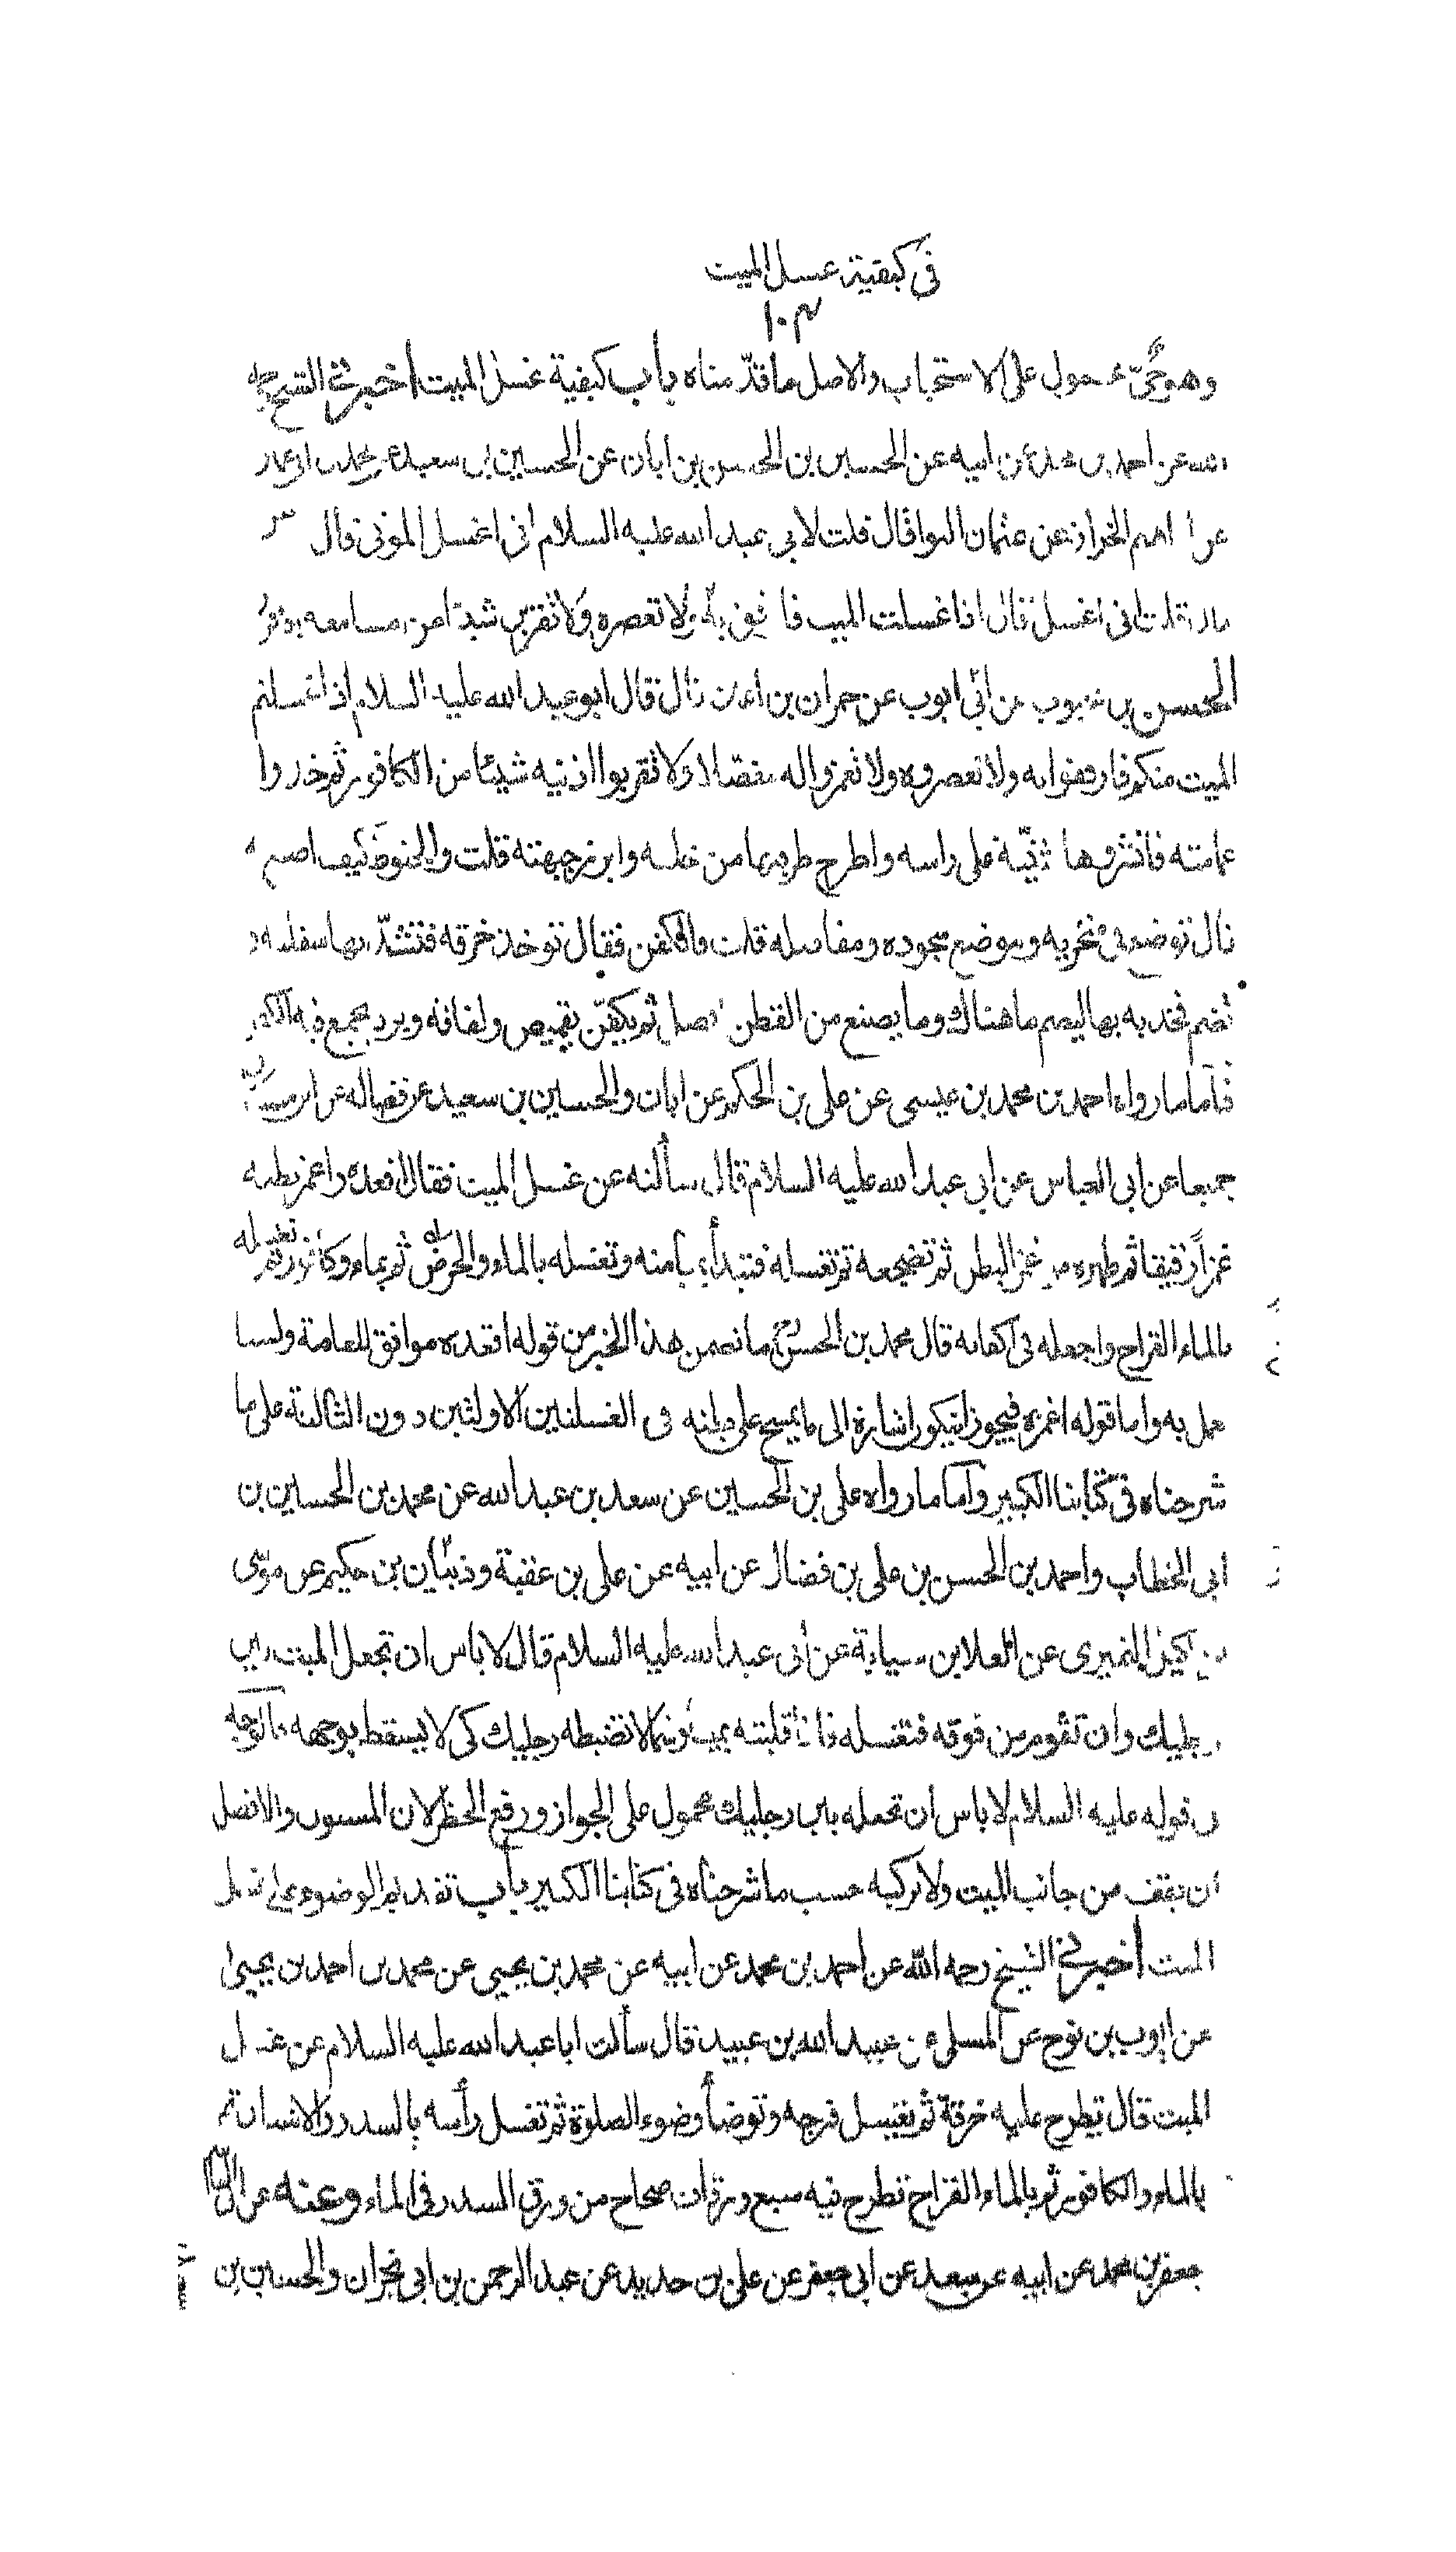 في كيفية غسل الميت
١٠٣
وهو محمول على الاستحباب والاصل ما قدّمناه باب كيفية غسل الميت أخبرني الشيخ رحمه
الله عن احمد بن محمد عن ابيه عن الحسين بن الحسن بن ابان عن الحسين بن سعيد عن محمد بن
الخزاز عن عثمان النوا قال قلت لابي عبد الله عليه السلام اني اغسل الموتى قال
اني اغسل فقال اذا غسلت الميت فارفق به ولا تعصره ولا تقربن شيئا من مسامعه
الحسن بن محبوب عن ابي ايوب عن حمران بن اعين قال قال ابو عبد الله عليه السلام اذا غسلتم
الميت منكم فارفقوا به ولا تعصروه ولا تغمزوا له مفصلا ولا تقربوا اذنيه شيئا من الكافور ثم خذوا
عمامته فانشروها مثنيّة على راسه واطرح طرفيها من خلفه وابرز جبهته قلت والحنوط كيف اصنع
قال توضع في منخريه وموضع سجوده ومفاصله قلت فالكفن فقال توخذ خرقه فتشدّ بها سفله و
تضم فخذيه بها ليضم ما هناك وما يصنع من القطن افضل ثم يكفّن بقميص ولفافه وبرد يجمع فيه الكفن
فأما ما رواه احمد بن محمد بن عيسى عن علي بن الحكم عن ابان والحسين بن سعيد عن فضاله عن
جميعا عن ابي العباس عن ابي عبد الله عليه السلام قال سألته عن غسل الميت فقال اقعده واغمز بطنه
غمزاً رقيقا ثم طهره من غمز البطن ثم تضجعه ثم تغسله فتبدأ بميامنه وتغسله بالماء والحرض ثم بماء وكافور ثم تغسله
بالماء القراح واجعله في اكفانه قال محمد بن الحسن ما تضمن هذا الخبر من قوله اقعده موافق للعامة ولسنا
نعمل به واما قوله اغمزه فيجوز ان يكون اشارة الى ما يمسح على بطنه في الغسلتين الاولتين دون الثالثة على ما
شرحناه في كتابنا الكبير وأما ما رواه علي بن الحسين عن سعد بن عبد الله عن محمد بن الحسين بن
ابي الخطاب واحمد بن الحسن بن علي بن فضال عن ابيه عن علي بن عقبة وذبيان بن حكيم عن موسى
بن اكيل النميري عن العلا بن سيابة عن ابي عبد الله عليه السلام قال لا باس ان تجعل الميت بين
رجليك وان تقوم من فوقه فتغسله اذا قلبته يمينا وشمالا تضبطه رجليك كي لا يسقط بوجهه فالوجه
في قوله عليه السلام لا باس ان تجعله بين رجليك محمول على الجواز ورفع الحظر لان المسنون والافضل
ان يقف من جانب الميت ولا يركبه حسب ما شرحناه في كتابنا الكبير باب تقديم الوضوء على غسل
الميت أخبرني الشيخ رحمه الله عن احمد بن محمد عن ابيه عن محمد بن يحيى عن محمد بن احمد بن يحيى
عن ايوب بن نوح عن المسلي عن عبيد الله بن عبيد قال سألت ابا عبد الله عليه السلام عن غسل
الميت قال تطرح عليه خرقة ثم تغسل فرجه وتوضأ وضوء الصلوة ثم تغسل رأسه بالسدر والاشنان ثم
بالماء والكافور ثم بالماء القراح تطرح فيه سبع ورقات صحاح من ورق السدر في الماء وعنه عن
جعفر بن محمد عن ابيه عن سعد عن ابي جعفر عن علي بن حديد عن عبد الرحمن بن ابي نجران والحسين بن